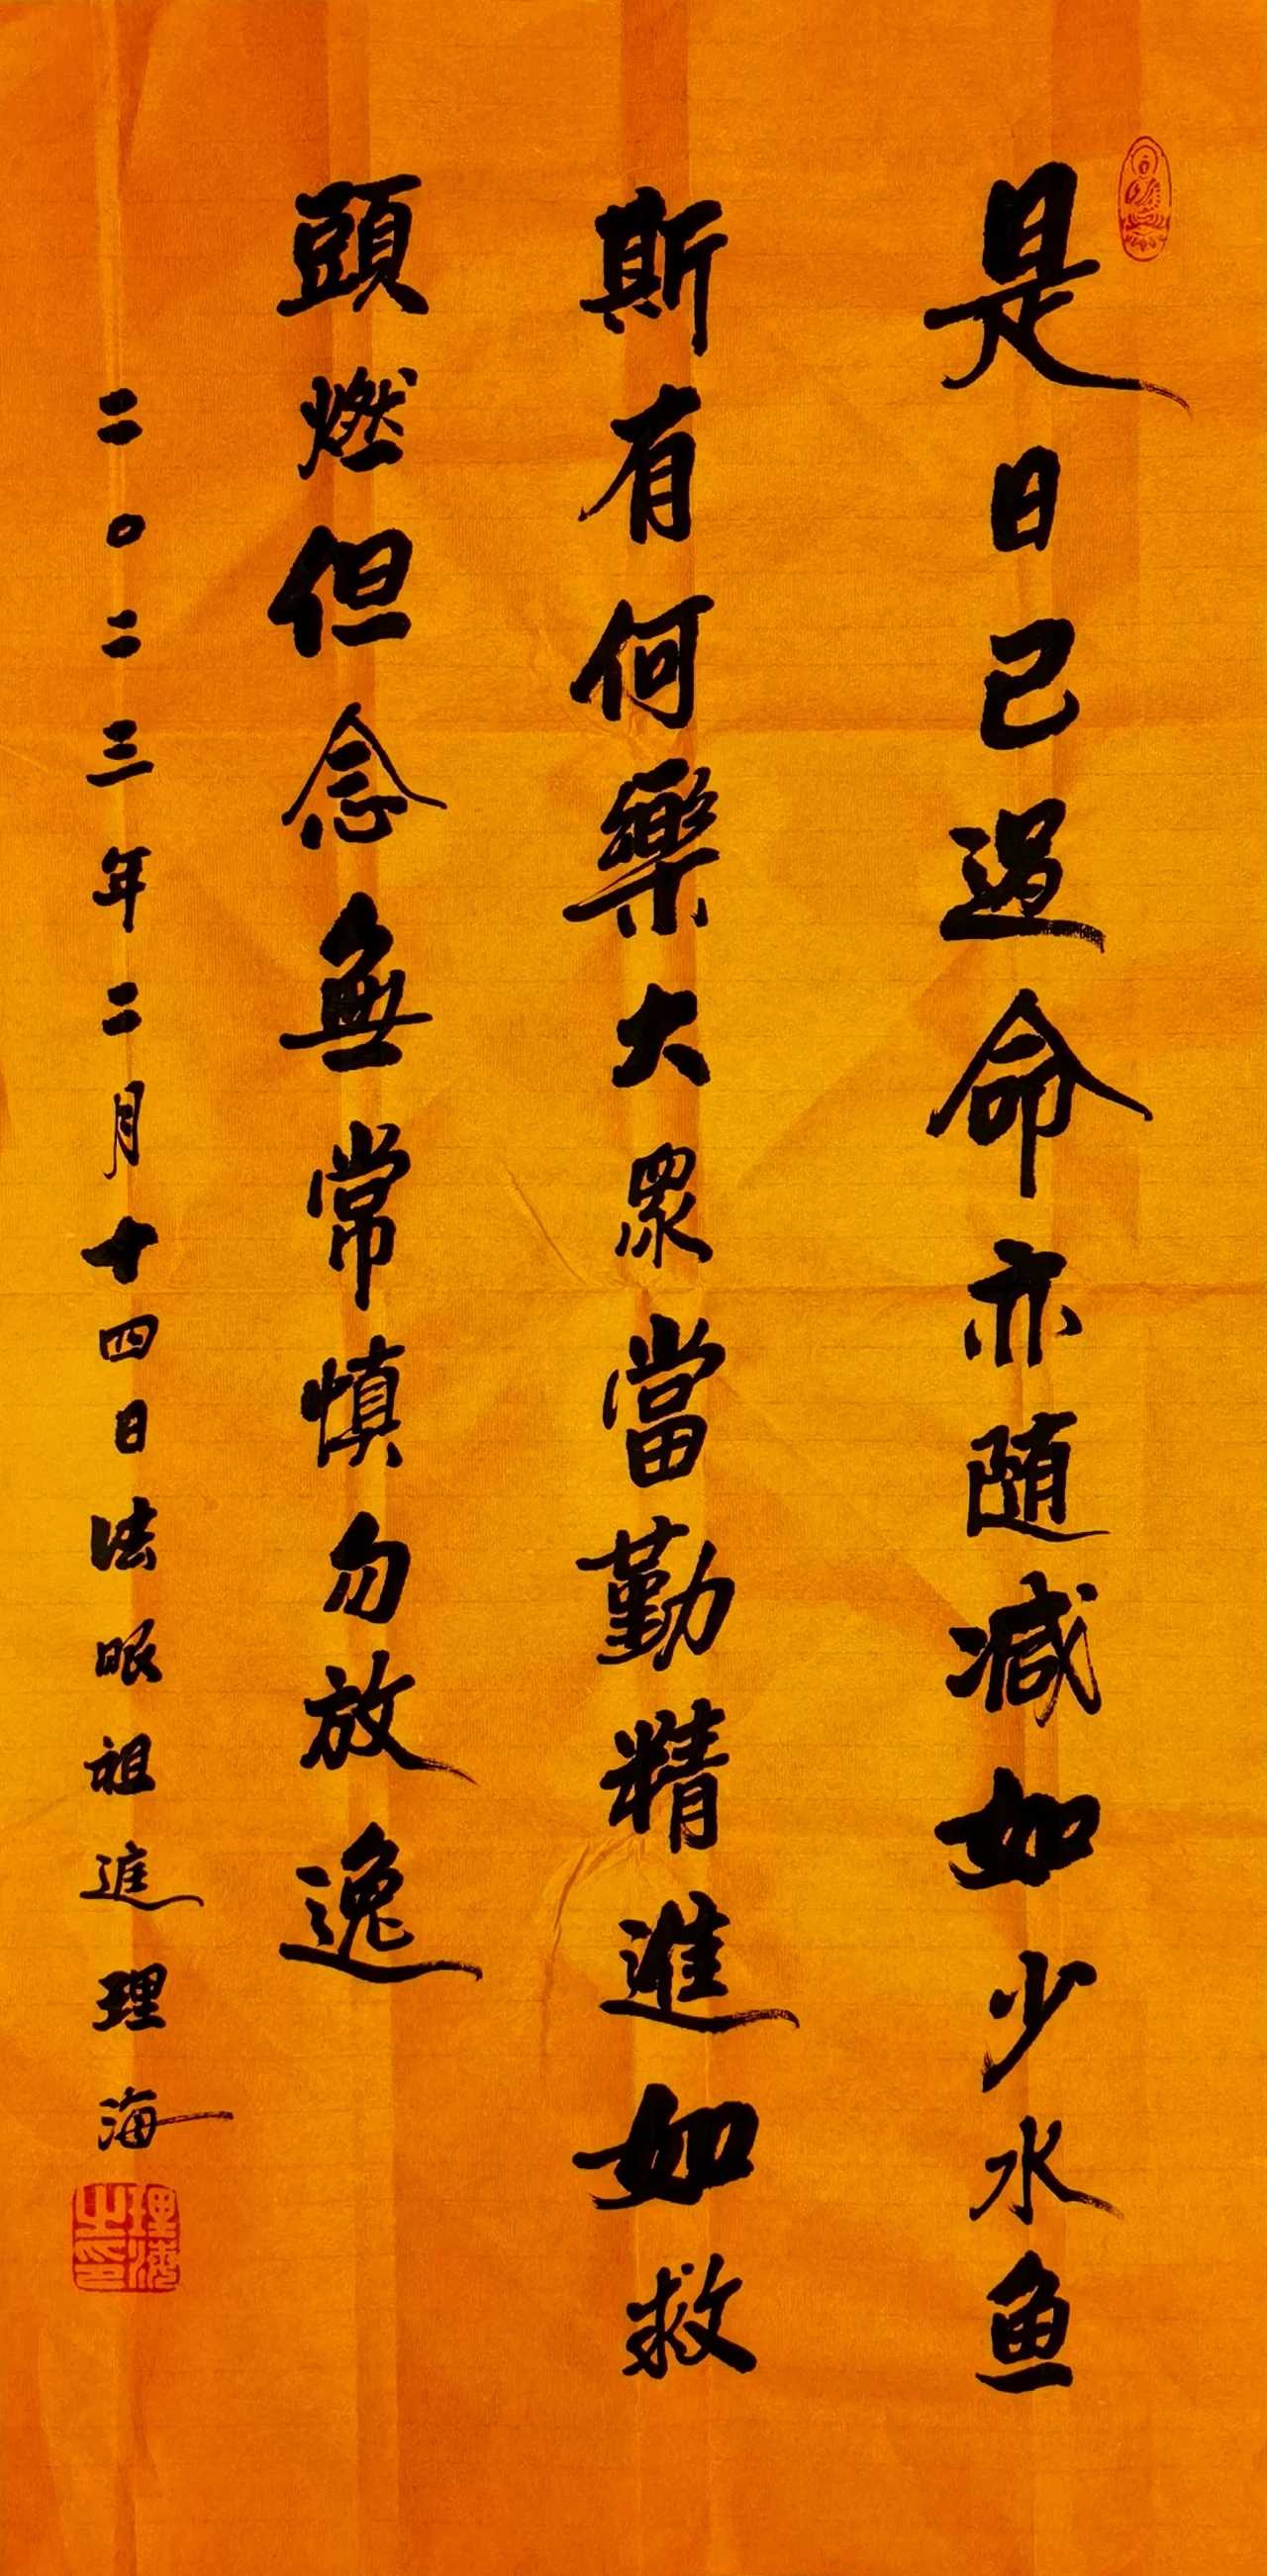 是日已過命亦随減如少水鱼
斯有何樂大眾當勤精進如救
頭燃但念無常慎勿放逸
二〇二三年二月十四日法眼祖進理海
理海之印